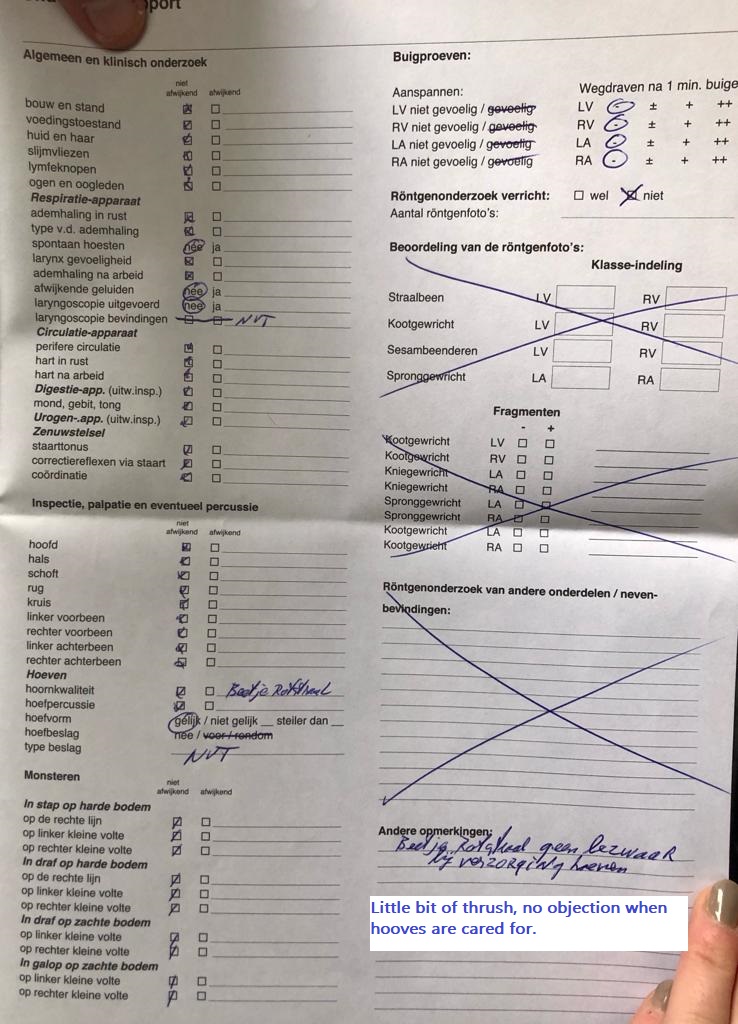 port
Algemeen en klinisch onderzoek
niet
afwijkend afwijkend
bouw en stand
voedingstoestand
huid en haar
slijmvliezen
lymfeknopen
ogen en oogleden
Respiratie-apparaat
ademhaling in rust
type v.d. ademhaling
spontaan hoesten nee ja
larynx gevoeligheid
ademhaling na arbeid
afwijkende geluiden nee ja
laryngoscopie uitgevoerd nee ja
laryngoscopie bevindingen NVT
Circulatie-apparaat
perifere circulatie
hart in rust
hart na arbeid
Digestie-app. (uitw.insp.)
mond, gebit, tong
Urogen-.app. (uitw.insp.)
Zenuwstelsel
staarttonus
correctiereflexen via staart
coördinatie
Inspectie, palpatie en eventueel percussie
niet
afwijkend afwijkend
hoofd
hals
schoft
rug
kruis
linker voorbeen
rechter voorbeen
linker achterbeen
rechter achterbeen
Hoeven
hoornkwaliteit Beetje Rotstraal
hoefpercussie
hoefvorm gelijk / niet gelijk __ steiler dan __
hoefbeslag nee / voor / rondom
type beslag NVT
Monsteren
niet
afwijkend afwijkend
In stap op harde bodem
op de rechte lijn
op linker kleine volte
op rechter kleine volte
In draf op harde bodem
op de rechte lijn
op linker kleine volte
op rechter kleine volte
In draf op zachte bodem
op linker kleine volte
op rechter kleine volte
In galop op zachte bodem
op linker kleine volte
op rechter kleine volte
Buigproeven:
Aanspannen: Wegdraven na 1 min. buige
LV niet gevoelig / gevoelig LV - ± + ++
RV niet gevoelig / gevoelig RV - ± + ++
LA niet gevoelig / gevoelig LA - ± + ++
RA niet gevoelig / gevoelig RA - ± + ++
Röntgenonderzoek verricht: wel niet
Aantal röntgenfoto's:
Beoordeling van de röntgenfoto's:
Klasse-indeling
Straalbeen LV RV
Kootgewricht LV RV
Sesambeenderen LV RV
Spronggewricht LA RA
Fragmenten
- +
Kootgewricht LV
Kootgewricht RV
Kniegewricht LA
Kniegewricht RA
Spronggewricht LA
Spronggewricht RA
Kootgewricht LA
Kootgewricht RA
Röntgenonderzoek van andere onderdelen / neven-
bevindingen:
Andere opmerkingen:
Beetje Rotstraal geen bezwaar
bij verzorging hoeven
Little bit of thrush, no objection when
hooves are cared for.